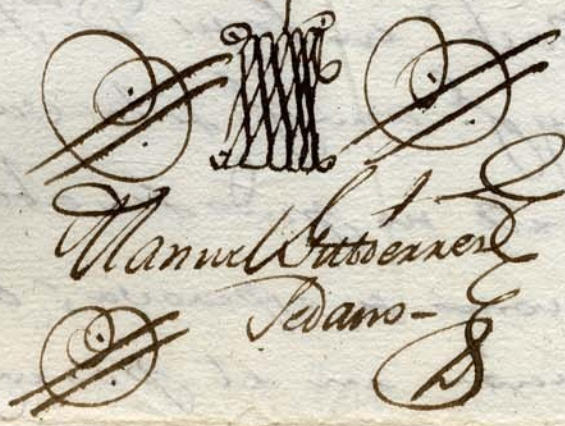 Manuel Gutierrez
Sedano